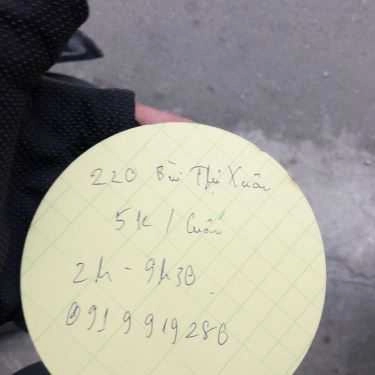 220 Bùi Thị Xuân
5k / Cuốn
2h - 9h30
0919919280